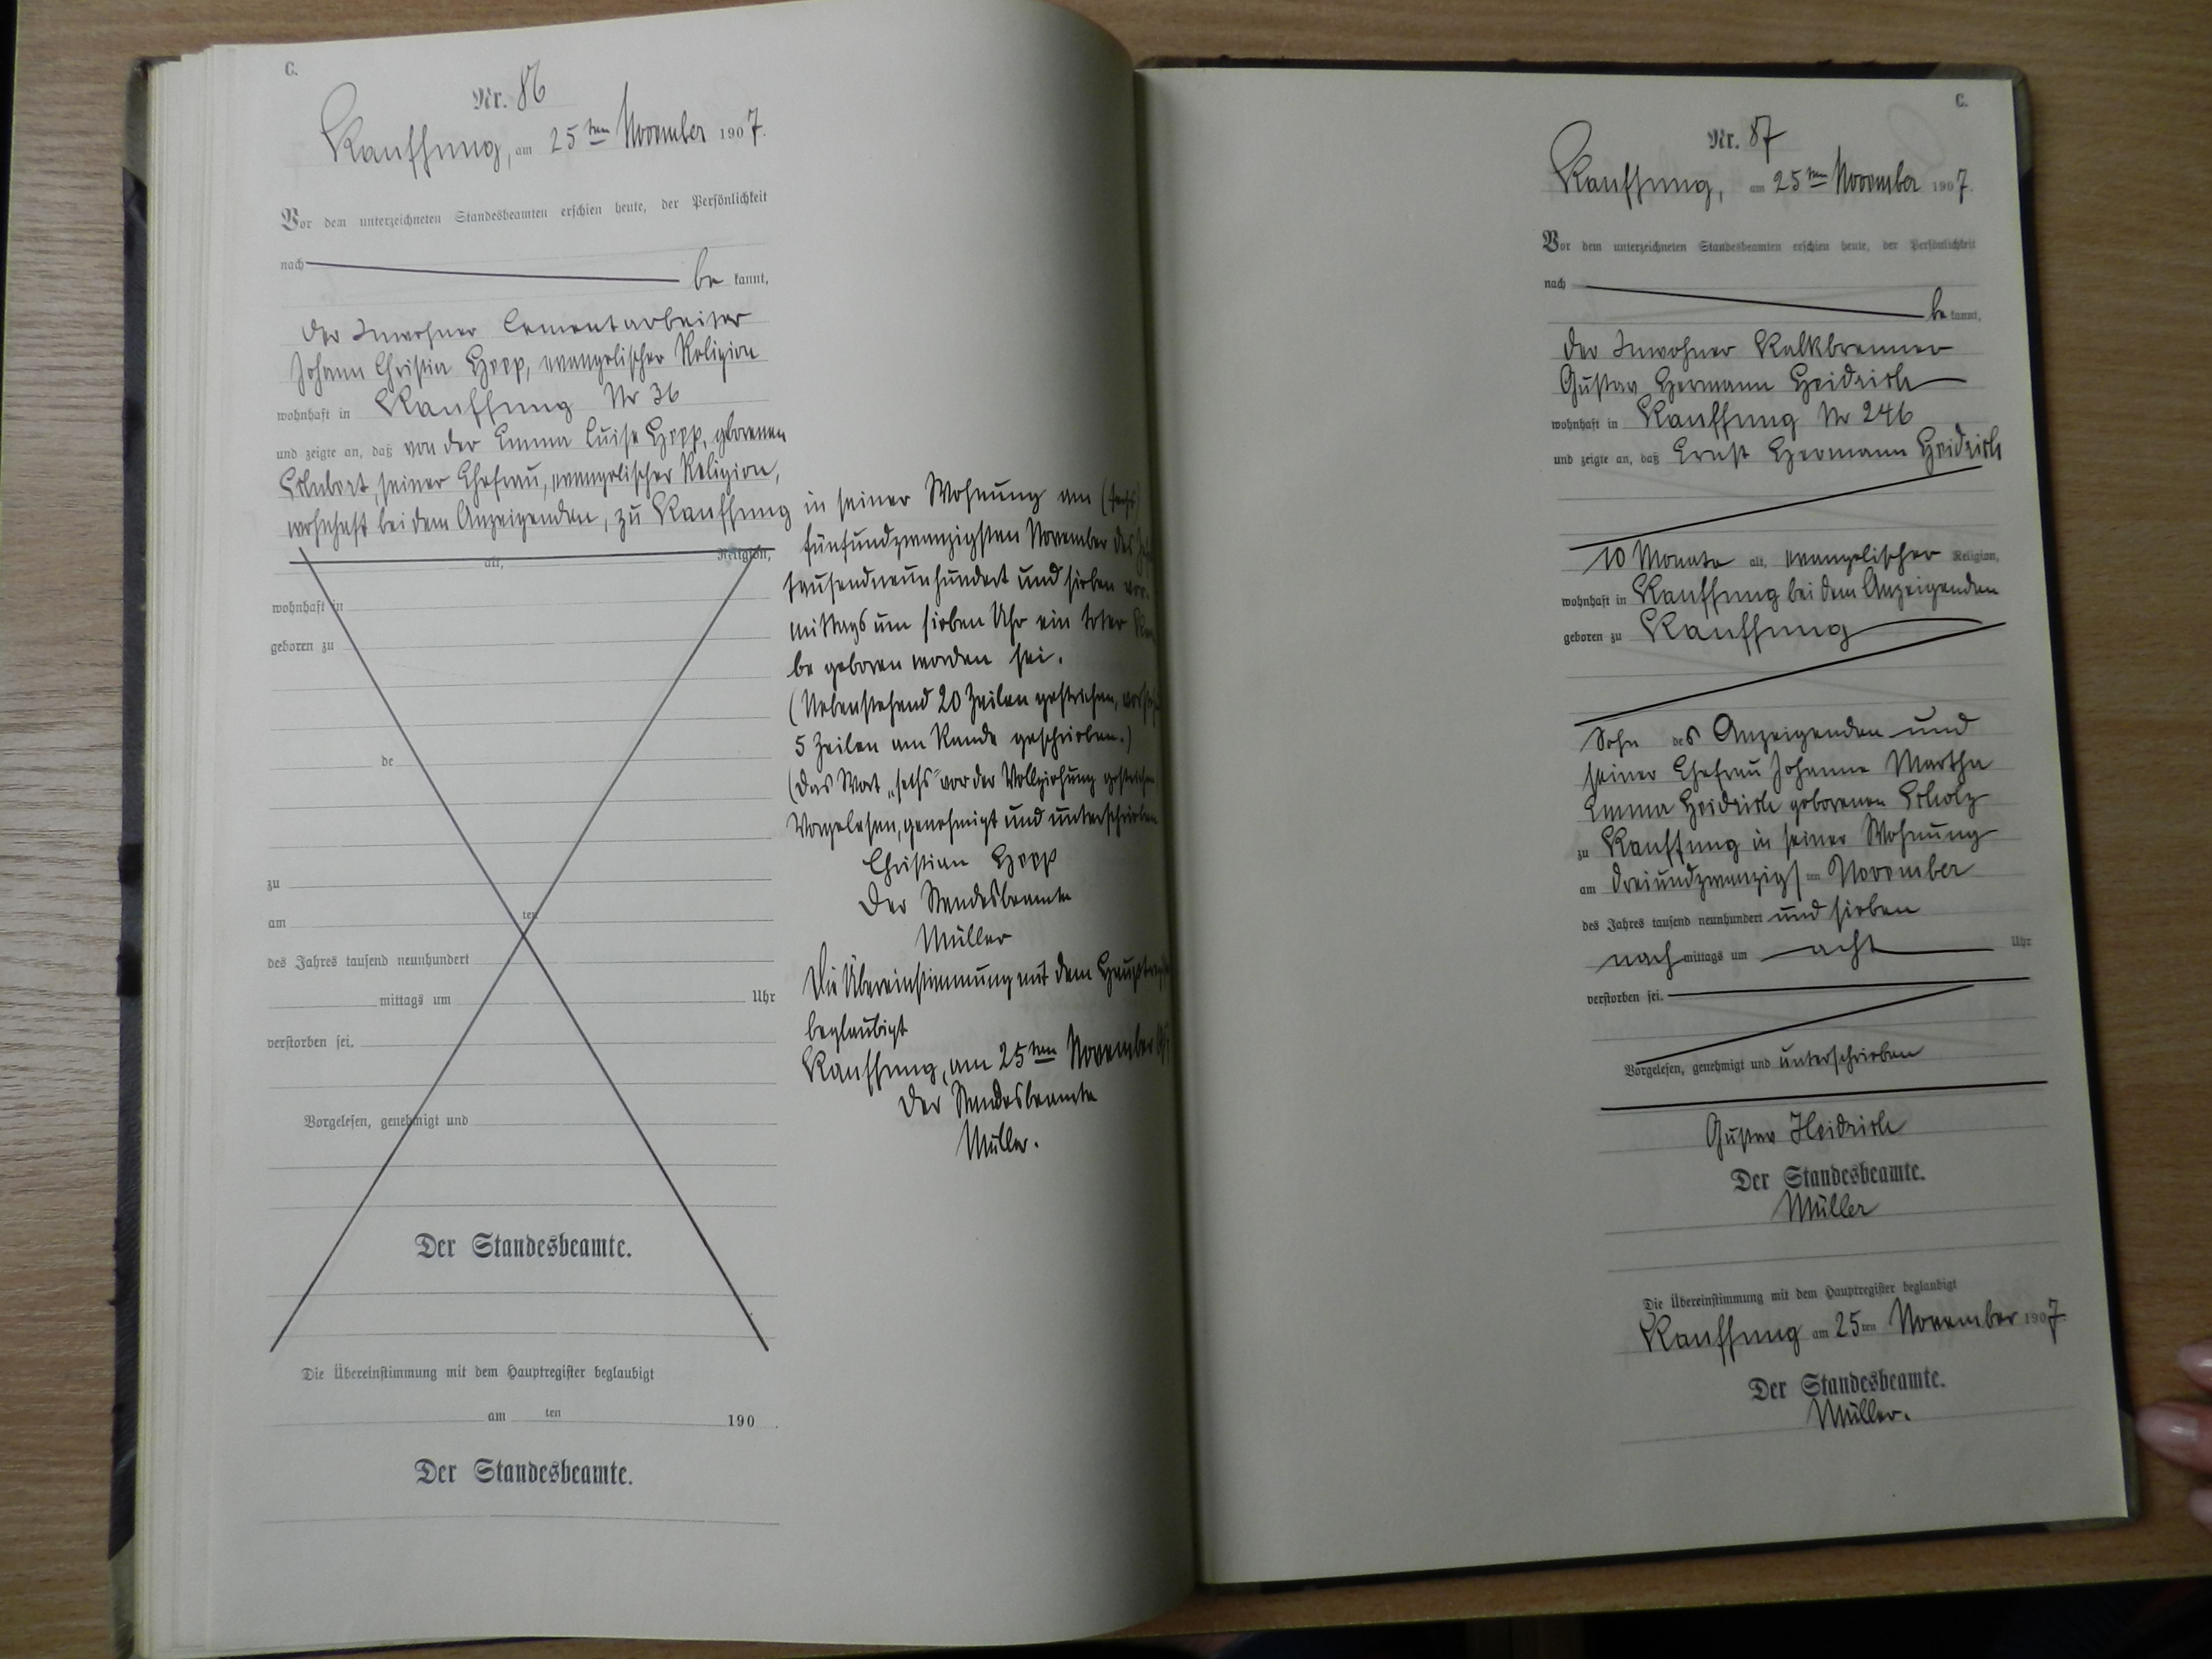 C.
Nr. 86
Kauffung, am 25ten November 1907.
Vor dem unterzeichneten Standesbeamten erschien heute, der Persönlichkeit
nach be kannt,
der Inwohner Cementarbeiter
Johann Christian Hopp, evangelischer Religion
wohnhaft in Kauffung Nr 36
und zeigte an, daß von der Emma Luise Hopp, geborenen
Schubert, seiner Ehefrau, evangelischer Religion,
wohnhaft bei dem Anzeigenden, zu Kauffung
alt, Religion,
wohnhaft in
geboren zu
de
zu
am ten
des Jahres tausend neunhundert
mittags um Uhr
verstorben sei.
Vorgelesen, genehmigt und
Der Standesbeamte.
Die Übereinstimmung mit dem Hauptregister beglaubigt
am ten 190 .
Der Standesbeamte.
in seiner Wohnung am (sechs)
fünfundzwanzigsten November des
tausendneunhundert und sieben vor-
mittags um sieben Uhr ein toter Kna
be geboren worden sei.
(Nebenstehend 20 Zeilen gestrichen,
5 Zeilen am Rande geschrieben.)
(Das Wort „sechs" vor der Vollziehung gestrichen
Vorgelesen, genehmigt und unterschrieben
Christian Hopp
Der Standesbeamte
Müller
Die Übereinstimmung mit dem
beglaubigt
Kauffung, am 25ten November
Der Standesbeamte
Müller.
C.
Nr. 87
Kauffung, am 25ten November 1907.
Vor dem unterzeichneten Standesbeamten erschien heute, der Persönlichkeit
nach be kannt,
der Inwohner Kalkbrenner
Gustav Hermann Heidrich
wohnhaft in Kauffung Nr 246
und zeigte an, daß Ernst Hermann Heidrich
10 Monate alt, evangelischer Religion,
wohnhaft in Kauffung bei dem Anzeigenden
geboren zu Kauffung
Sohn des Anzeigenden und
seiner Ehefrau Johanne Martha
Emma Heidrich geborenen Scholz
zu Kauffung in seiner Wohnung
am dreiundzwanzigsten November
des Jahres tausend neunhundert und sieben
nach mittags um acht Uhr
verstorben sei.
Vorgelesen, genehmigt und unterschrieben
Gustav Heidrich
Der Standesbeamte.
Müller
Die Übereinstimmung mit dem Hauptregister beglaubigt
Kauffung am 25ten November 1907.
Der Standesbeamte.
Müller.